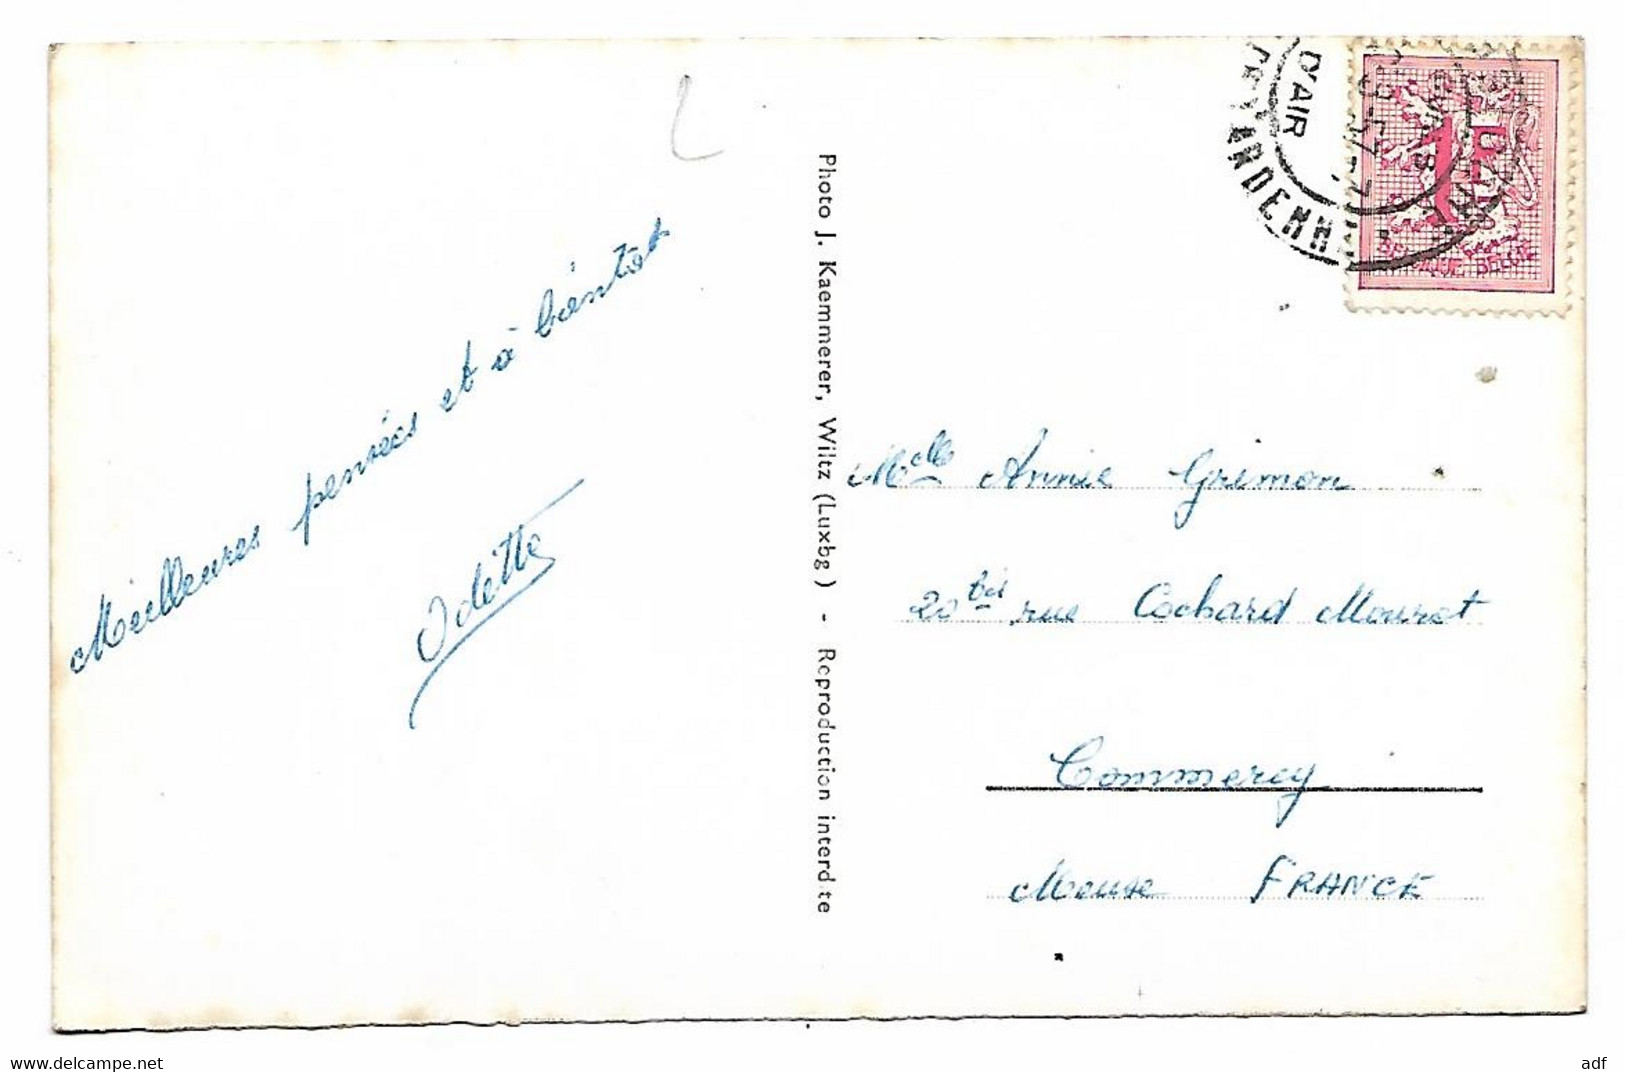 Meilleures pensées et à bientôt
Odette
Photo J. Kaemmerer, Wiltz (Luxbg) - Reproduction interdite
D'AIR
ARDENN
1F
BELGIQUE BELGIE
Melle Annie Grimon
20 bis rue Cochard Mouret
Commercy
Meuse FRANCE
www.delcampe.net
adf